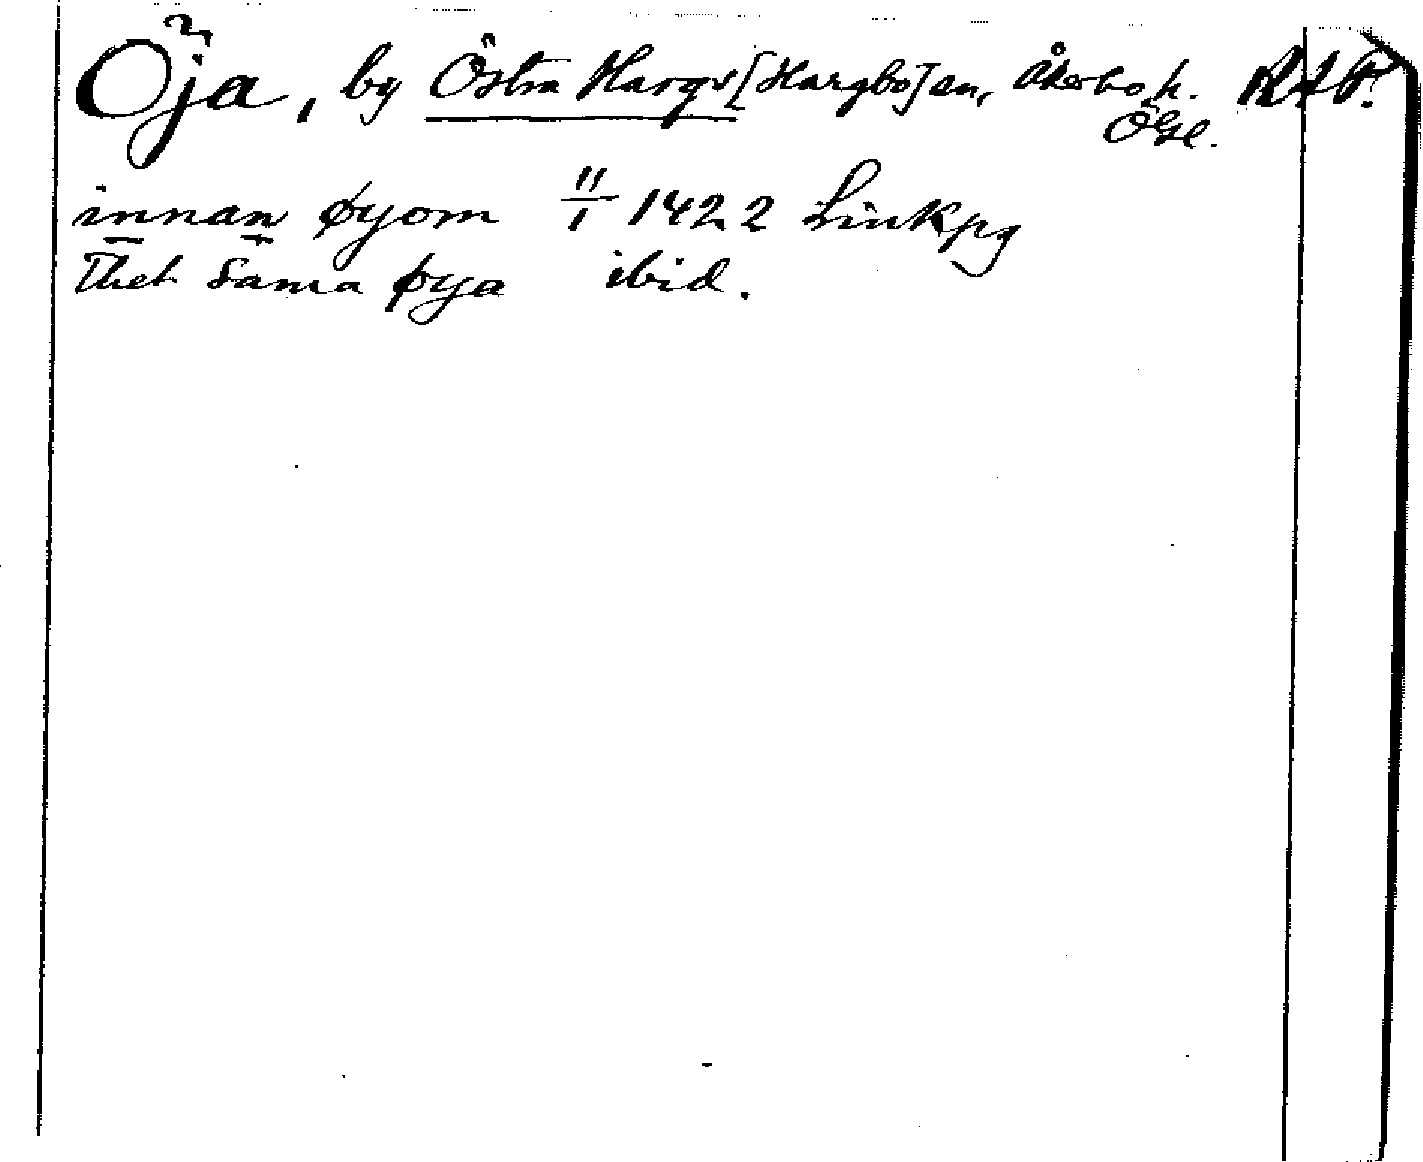 Öja, by Östra Hargs [Hargbo] sn, Åkerbo h. RAP.
ÖGl.
innan øyom 11/1 1422 Linkpg
Thet sama øya ibid.